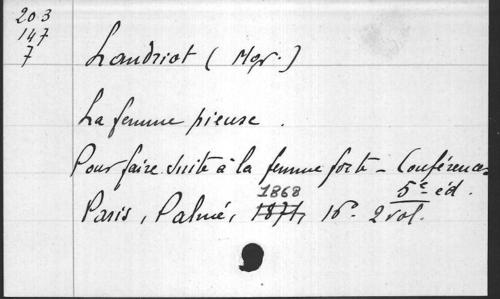 203
147
7
Landriot (Mgr.)
La femme pieuse.
Pour faire suite à la femme forte - Conférences
5e éd.
Paris, Palmé, 1871, 1868 16o. 2 vol.